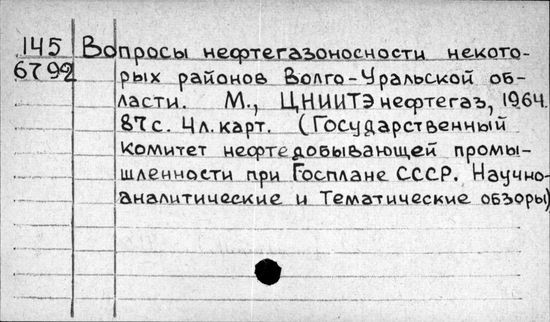 145 Вопросы нефтегазоносности некото-
6792 рых районов Волго-Уральской об-
ласти. М., ЦНИИТЭнефтегаз, 1964.
87с. 4л.карт. (Государственный
комитет нефтедобывающей промы-
шленности при Госплане СССР. Научно-
аналитические и Тематические обзоры)